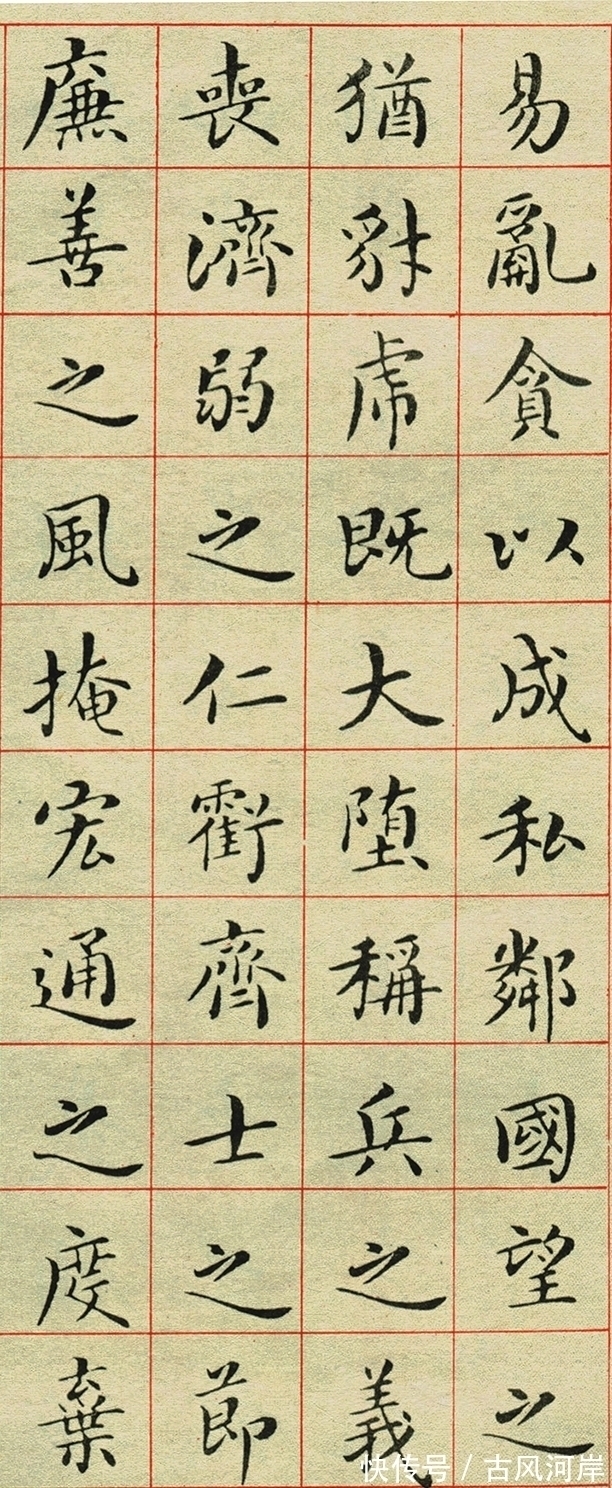 易亂貪以成私鄰國望之
猶豺虎既大堕稱兵之義
喪濟弱之仁虧齊士之節
廉善之風掩宏通之度棄
快传号 / 古风河岸